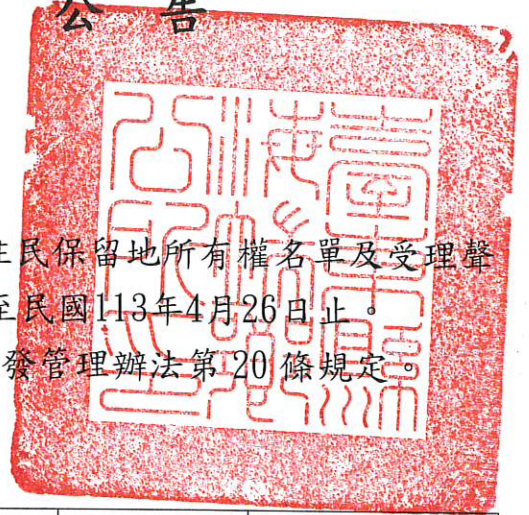 公 告
臺東縣
海端鄉
公所印
住民保留地所有權名單及受理聲
至民國113年4月26日止。
發管理辦法第20條規定。